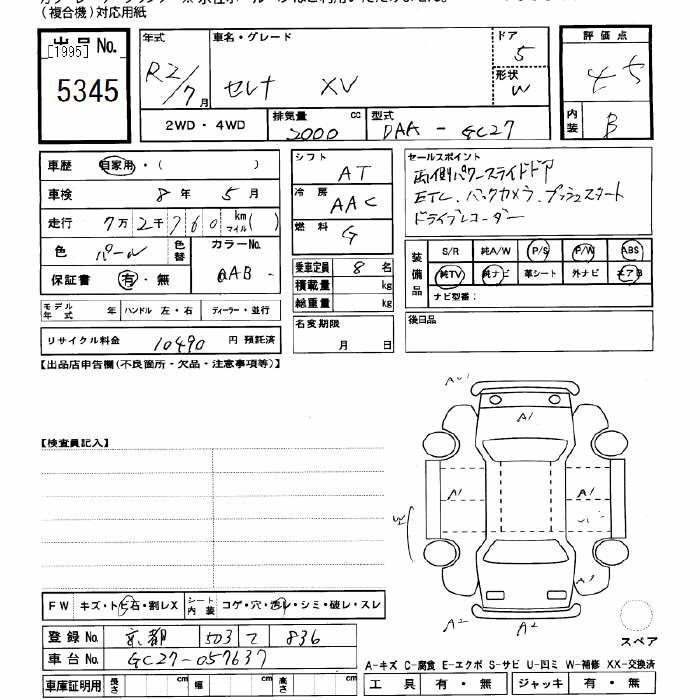 (複合機)対応用紙
出品No.
[1995]
5345
年式
R2/7月
車名・グレード
セレナ XV
ドア
5
形状
W
評価点
内装
B
2WD・4WD
排気量 cc
2000
型式
DAA - GC27
車歴 自家用・( )
車検 8年 5月
走行 7万2千760km マイル( )
色 パール
色替
カラーNo.
QAB -
保証書 有・無
シフト AT
冷房 AAC
燃料 G
乗車定員 8名
積載量 kg
総重量 kg
セールスポイント
両側パワースライドドア
ETC、バックカメラ、プッシュスタート
ドライブレコーダー
装備品
S/R 純A/W P/S P/W ABS
純TV 純ナビ 革シート 外ナビ エアB
ナビ型番:
モデル年式 年 ハンドル 左・右 ディーラー・並行
リサイクル料金 10490円 預託済
名変期限
月 日
後日品
【出品店申告欄(不良箇所・欠品・注意事項等)】
【検査員記入】
A1
A1 A1
W
A1
A2 A2
FW キズ・トビ石・割レX
シート内装 コゲ・穴・スレ・シミ・破レ・スレ
登録No. 京都 503 て 836
車台No. GC27-057637
車庫証明用 長さ cm 幅 cm 高さ cm
スペア
A-キズ C-腐食 E-エクボ S-サビ U-凹ミ W-補修 XX-交換済
工具 有・無 ジャッキ 有・無